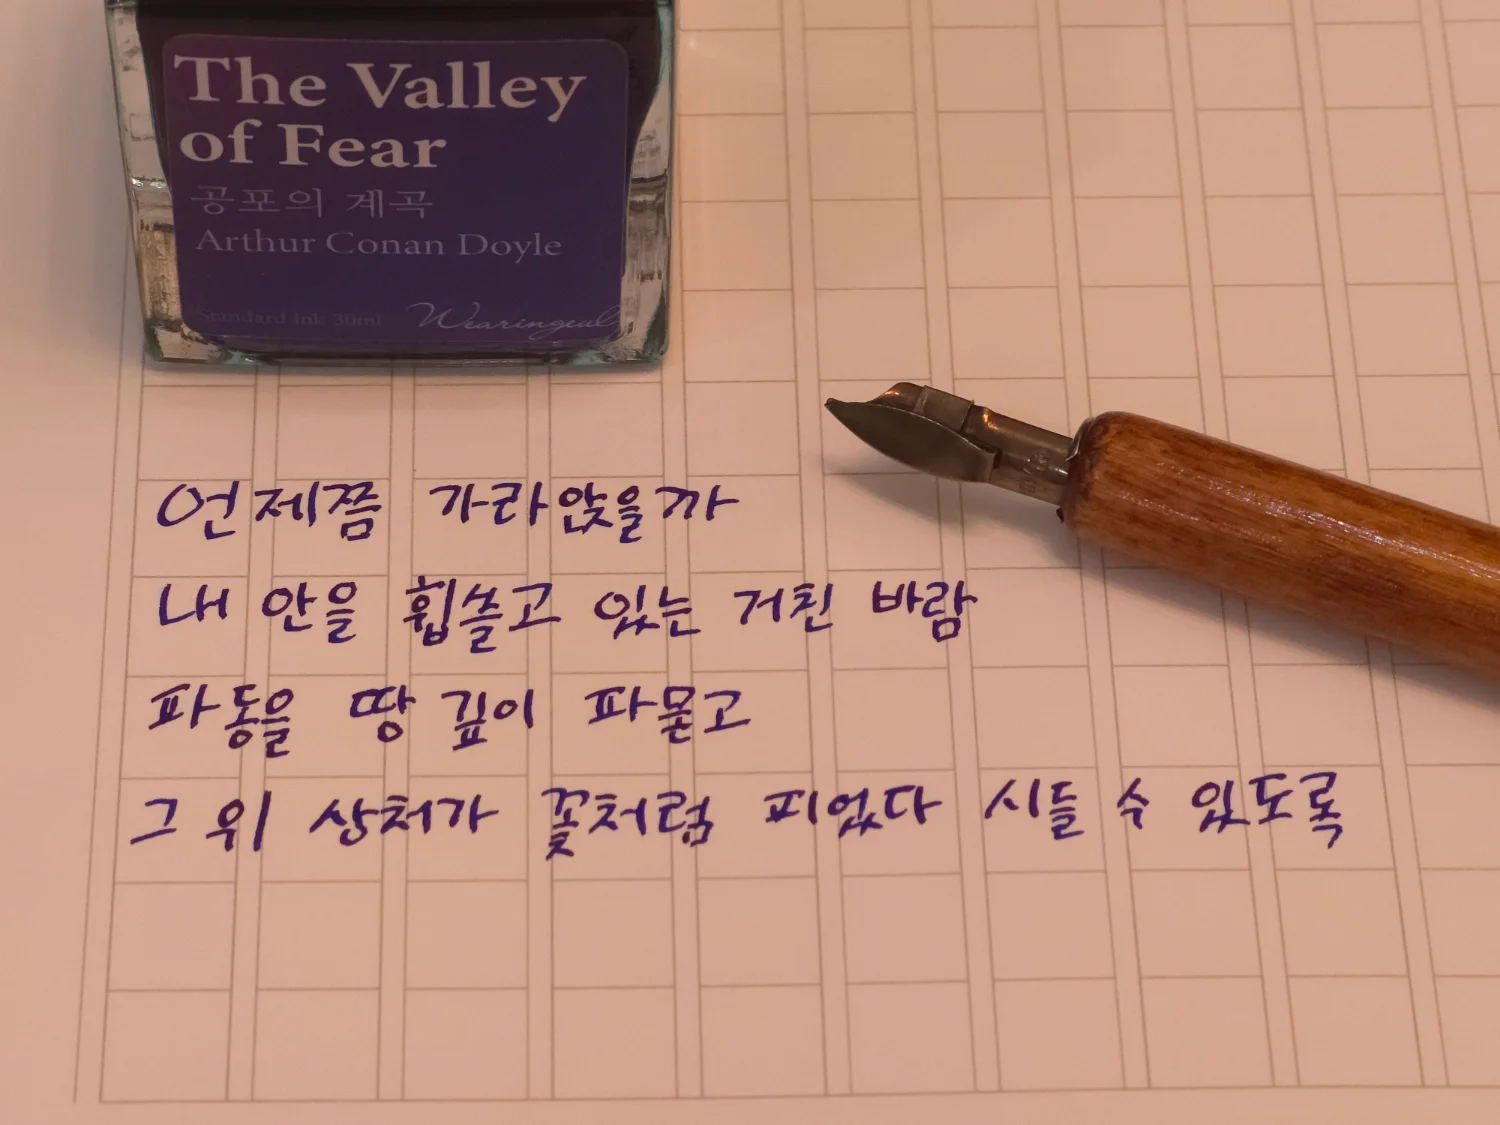 The Valley
of Fear
공포의 계곡
Arthur Conan Doyle
Standard Ink 30ml Wearingeul
언제쯤 가라앉을까
내 안을 휩쓸고 있는 거친 바람
파동을 땅 깊이 파묻고
그 위 상처가 꽃처럼 피었다 시들 수 있도록